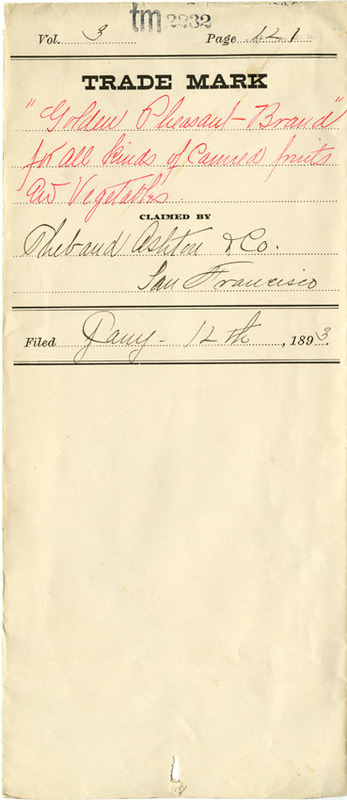 tm 2232
Vol. 3 Page 121
TRADE MARK
"Golden Pheasant-Brand"
for all kinds of Canned fruits
and Vegetables
CLAIMED BY
Thebaud Ashton & Co.
San Francisco
Filed Jany- 12th, 1893.